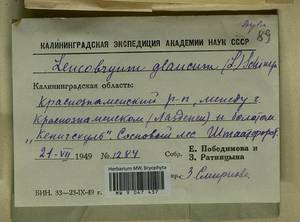 89
КАЛИНИНГРАДСКАЯ ЭКСПЕДИЦИЯ АКАДЕМИИ НАУК СССР
Leucobryum glaucum (L.) Schimp.
Калининградская область:
Краснознаменский р-н, между г.
Краснознаменском (Лазденен) и болотом
Сосновый лес
21-VII 1949 № 1284 Собр. Е. Победимова и
З. Ратницына
Herbarium MW, Bryophyta
MW 9 047 437
З. Смирнова
БИН. 33—23-IX-49 г.